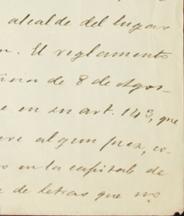 alcalde del lugar
n. El reglamento
de 8 de Agos-
e en su art. 143, que
algun juez, co-
en la capital de
de letras que no